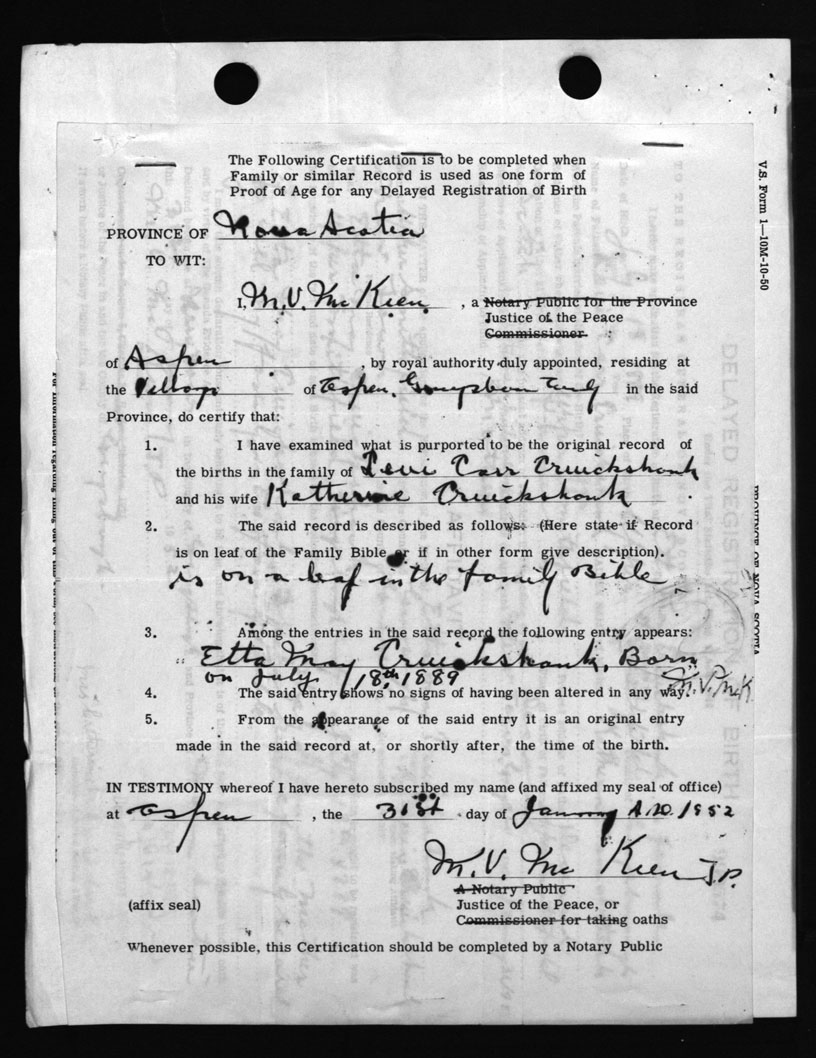 The Following Certification is to be completed when
Family or similar Record is used as one form of
Proof of Age for any Delayed Registration of Birth
V.S. Form 1—10M-10-50
PROVINCE OF Nova Scotia
TO WIT:
I, M. V. McKeen , a Notary Public for the Province
Justice of the Peace
Commissioner :
of Aspen , by royal authority duly appointed, residing at
the Village of Aspen, Guysboro County in the said
Province, do certify that:
1. I have examined what is purported to be the original record of
the births in the family of Levi Carr Cruickshank
and his wife Katherine Cruickshank .
2. The said record is described as follows: (Here state if Record
is on leaf of the Family Bible or if in other form give description).
is on a leaf in the family Bible
3. Among the entries in the said record the following entry appears:
Etta May Cruickshank, Born
on July 18th 1889
M.V. McK
4. The said entry shows no signs of having been altered in any way.
5. From the appearance of the said entry it is an original entry
made in the said record at, or shortly after, the time of the birth.
IN TESTIMONY whereof I have hereto subscribed my name (and affixed my seal of office)
at Aspen , the 31st day of January A.D. 1952
M. V. McKeen J.P.
A Notary Public
(affix seal) Justice of the Peace, or
Commissioner for taking oaths
Whenever possible, this Certification should be completed by a Notary Public
PROVINCE OF NOVA SCOTIA
DELAYED REGISTRATION BIRTH